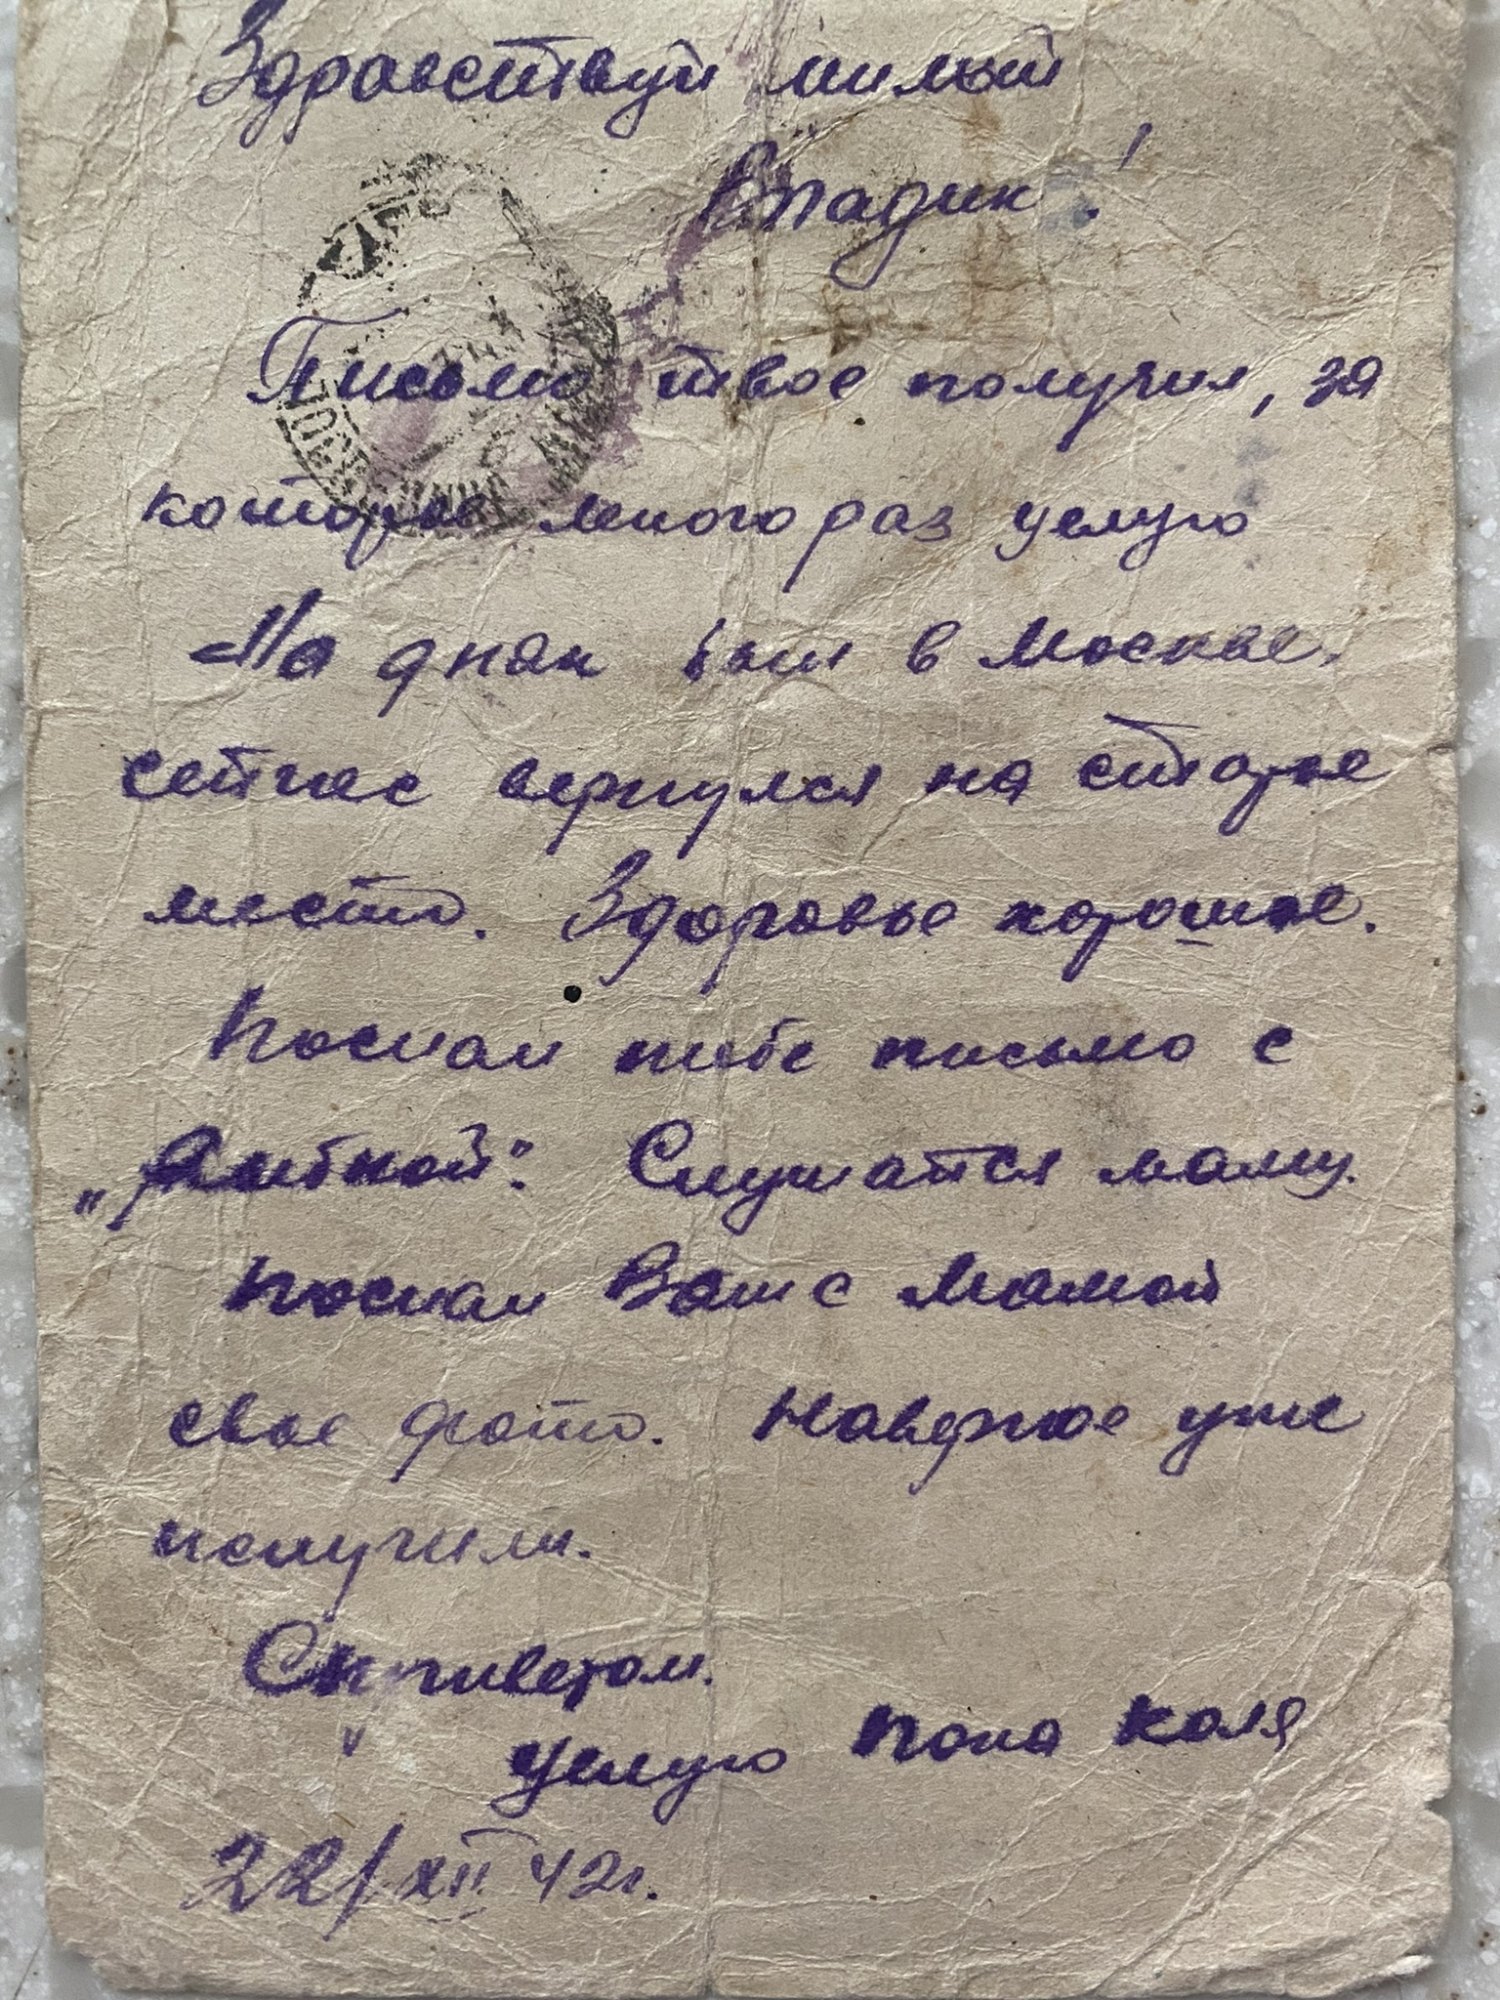 Здравствуй милый
Владик!
Письмо твое получил, за
которое много раз целую
На днях был в Москве,
сейчас вернулся на старое
место. Здоровье хорошее.
Послал тебе письмо с
Слушайся маму.
Послал Вам с Мамой
свое фото. Наверное уже
получили.
С приветом.
целую папа Коля
22/XII 42г.